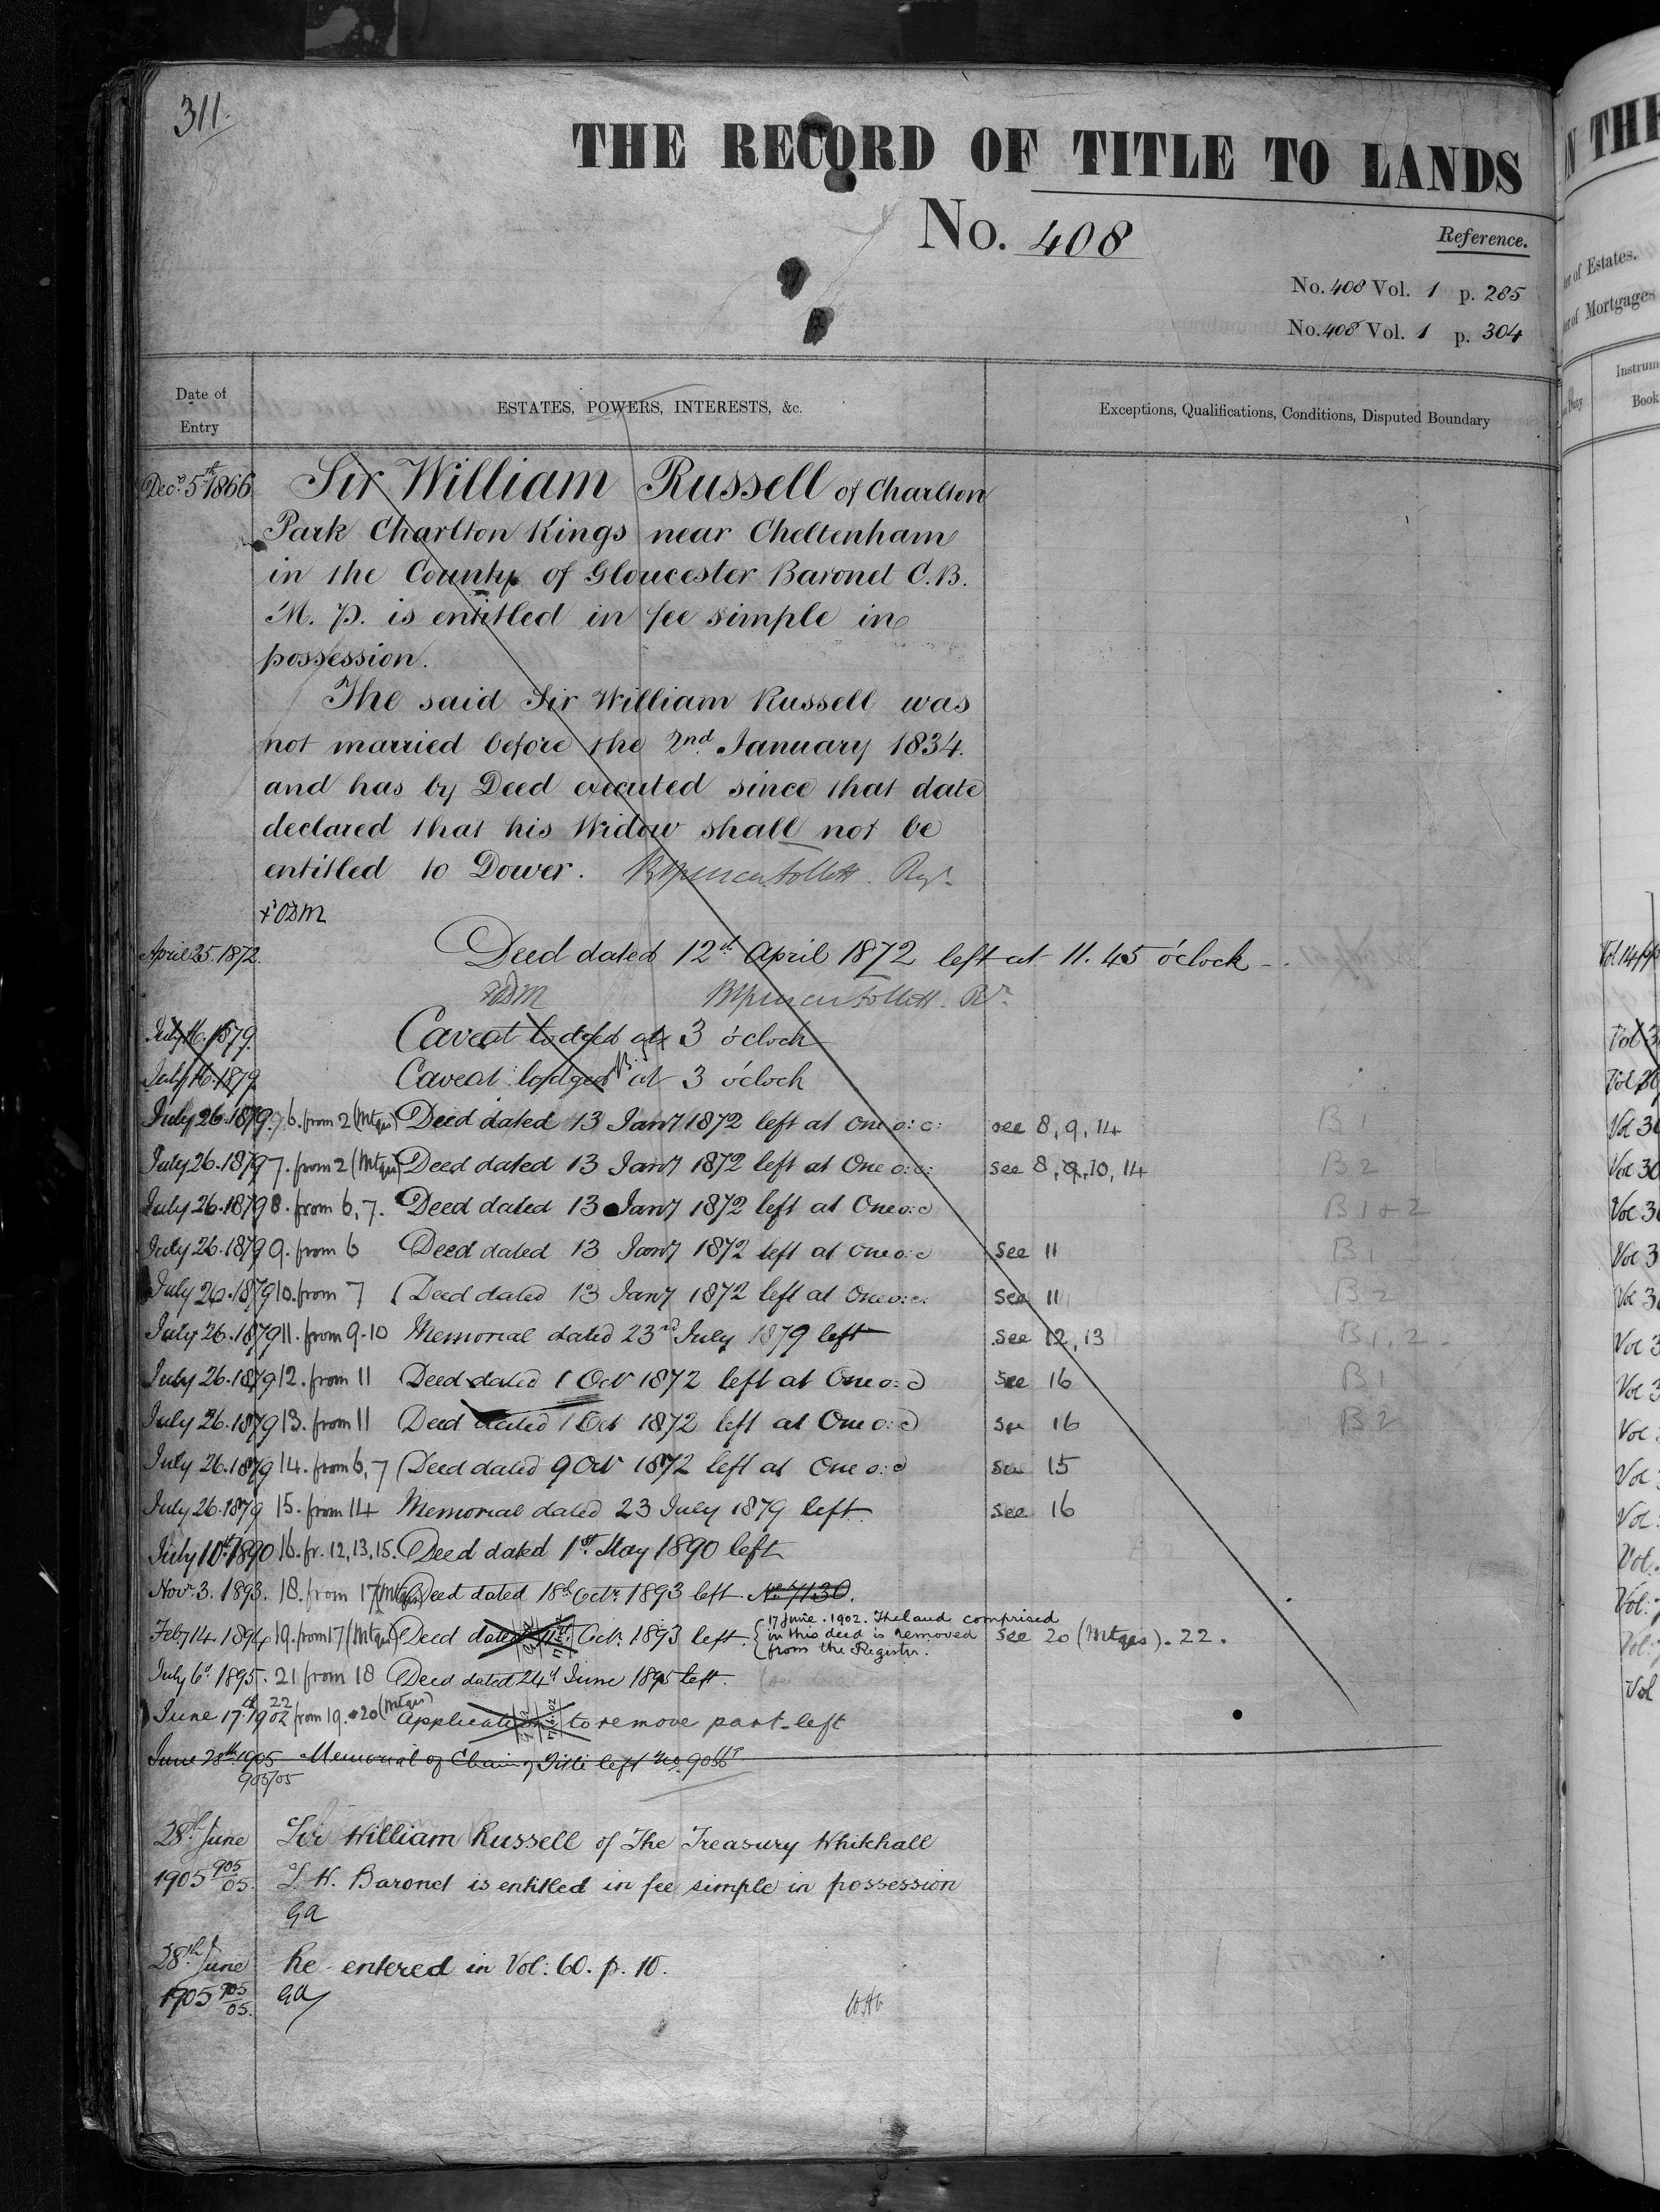 311.
THE RECORD OF TITLE TO LANDS
No. 408
Reference.
No. 408 Vol. 1 p. 285
No. 408 Vol. 1 p. 304
Date of Entry
ESTATES, POWERS, INTERESTS, &c.
Exceptions, Qualifications, Conditions, Disputed Boundary
Decr. 5th 1866 Sir William Russell of Charlton
Park Charlton Kings near Cheltenham
in the County of Gloucester Baronet C.B.
M. P. is entitled in fee simple in
possession.
The said Sir William Russell was
not married before the 2nd January 1834
and has by Deed executed since that date
declared that his Widow shall not be
entitled to Dower. Regr.
April 25. 1872. Deed dated 12th April 1872 left at 11.45 o'clock
July 16. 1879. Caveat lodged at 3 o'clock
July 16. 1879 Caveat lodged at 3 o'clock
July 26. 1879. 6. from 2 (Mtges) Deed dated 13 Jany 1872 left at One o:c: see 8, 9, 14 B 1
July 26. 1879 7. from 2 (Mtges) Deed dated 13 Jany 1872 left at One o:c: see 8, 9, 10, 14 B 2
July 26. 1879 8. from 6, 7. Deed dated 13 Jany 1872 left at One o:c B 1 + 2
July 26. 1879 9. from 6 Deed dated 13 Jany 1872 left at One o:c See 11 B 1
July 26. 1879 10. from 7 Deed dated 13 Jany 1872 left at One o:c. See 11 B 2
July 26. 1879 11. from 9.10 Memorial dated 23rd July 1879 left See 12, 13 B 1, 2
July 26. 1879 12. from 11 Deed dated 1 Oct 1872 left at One o:c See 16 B 1
July 26. 1879 13. from 11 Deed dated 1 Oct 1872 left at One o:c See 16 B 2
July 26. 1879 14. from 6, 7 Deed dated 9 Oct 1872 left at One o:c See 15
July 26. 1879 15. from 14 Memorial dated 23 July 1879 left See 16
July 10th 1890 16. fr. 12, 13, 15. Deed dated 1st May 1890 left
Novr. 3. 1893. 18. from 17 (Mtges) Deed dated 18th Octr. 1893 left No 7130.
Feby 14. 1894 19. from 17 (Mtges) Deed dated Octr. 1893 left. 17 June. 1902. The land comprised
in this deed is removed See 20 (Mtges). 22.
from the Register.
July 6th. 1895. 21 from 18 Deed dated 24th June 1895 left.
June 17th. 1902 22 from 19. 20 (Mtges) Application to remove part left
June 28th 1905 Memorial of Chain of Title left No. 905
905/05
28th June Sir William Russell of The Treasury Whitehall
1905 905/05. S.W. Baronet is entitled in fee simple in possession
GA
28th June Re-entered in Vol: 60. p. 10.
1905 905/05. GA
N THE
er of Estates.
er of Mortgages
Duty
Instrum
Book
Vol
Vol
Vol 30
Vol 30
Vol 3
Vol 3
Vol 3
Vol 3
Vol 3
Vol
Vol
Vol
Vol
Vol
Vol
Vol